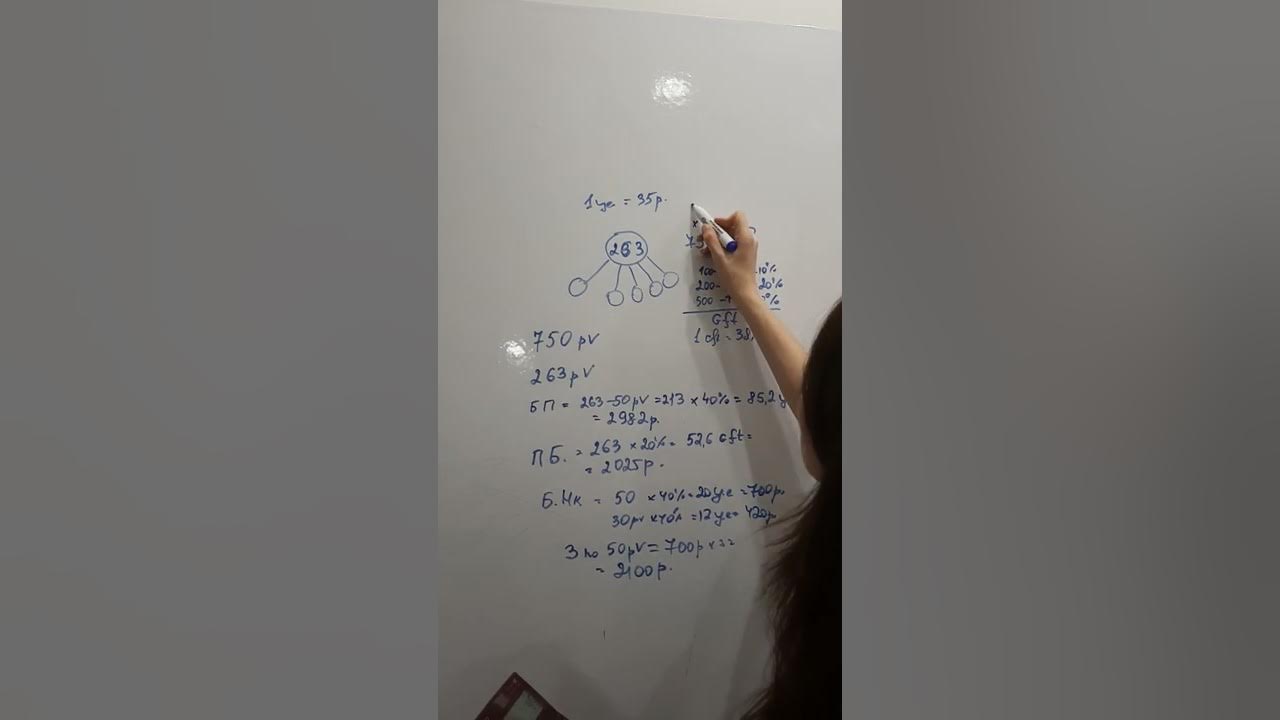 1 уе = 35р.
263
100- 10%
200- 20%
500 - %
Gft
1 Gft = 38,
750 pV
263 pV
БП = 263-50pV = 213 × 40% = 85,2 у
= 2982р.
ПБ. = 263 × 20% = 52,6 Gft =
= 2025р.
Б.Нк = 50 × 40% = 20уе = 700р.
30pv × 40% = 12уе = 420р
3 по 50pV = 700р ×
= 2100р.